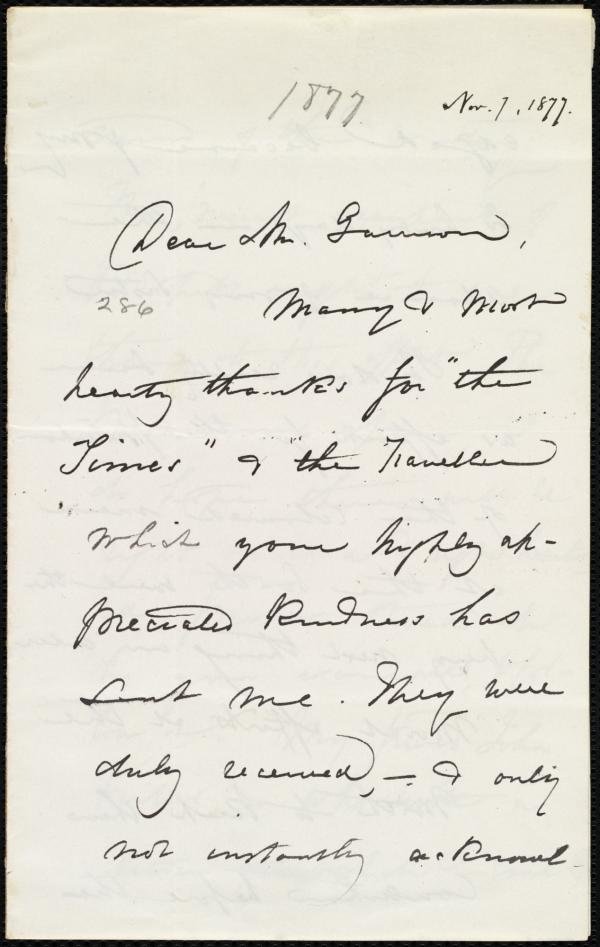 1877
Nov. 7, 1877.
Dear Mr. Garrison,
286
Many & most
hearty thanks for "the
Times" & "the Traveller
which your highly ap-
preciated kindness has
sent me. They were
duly received, — & only
not instantly acknowl-